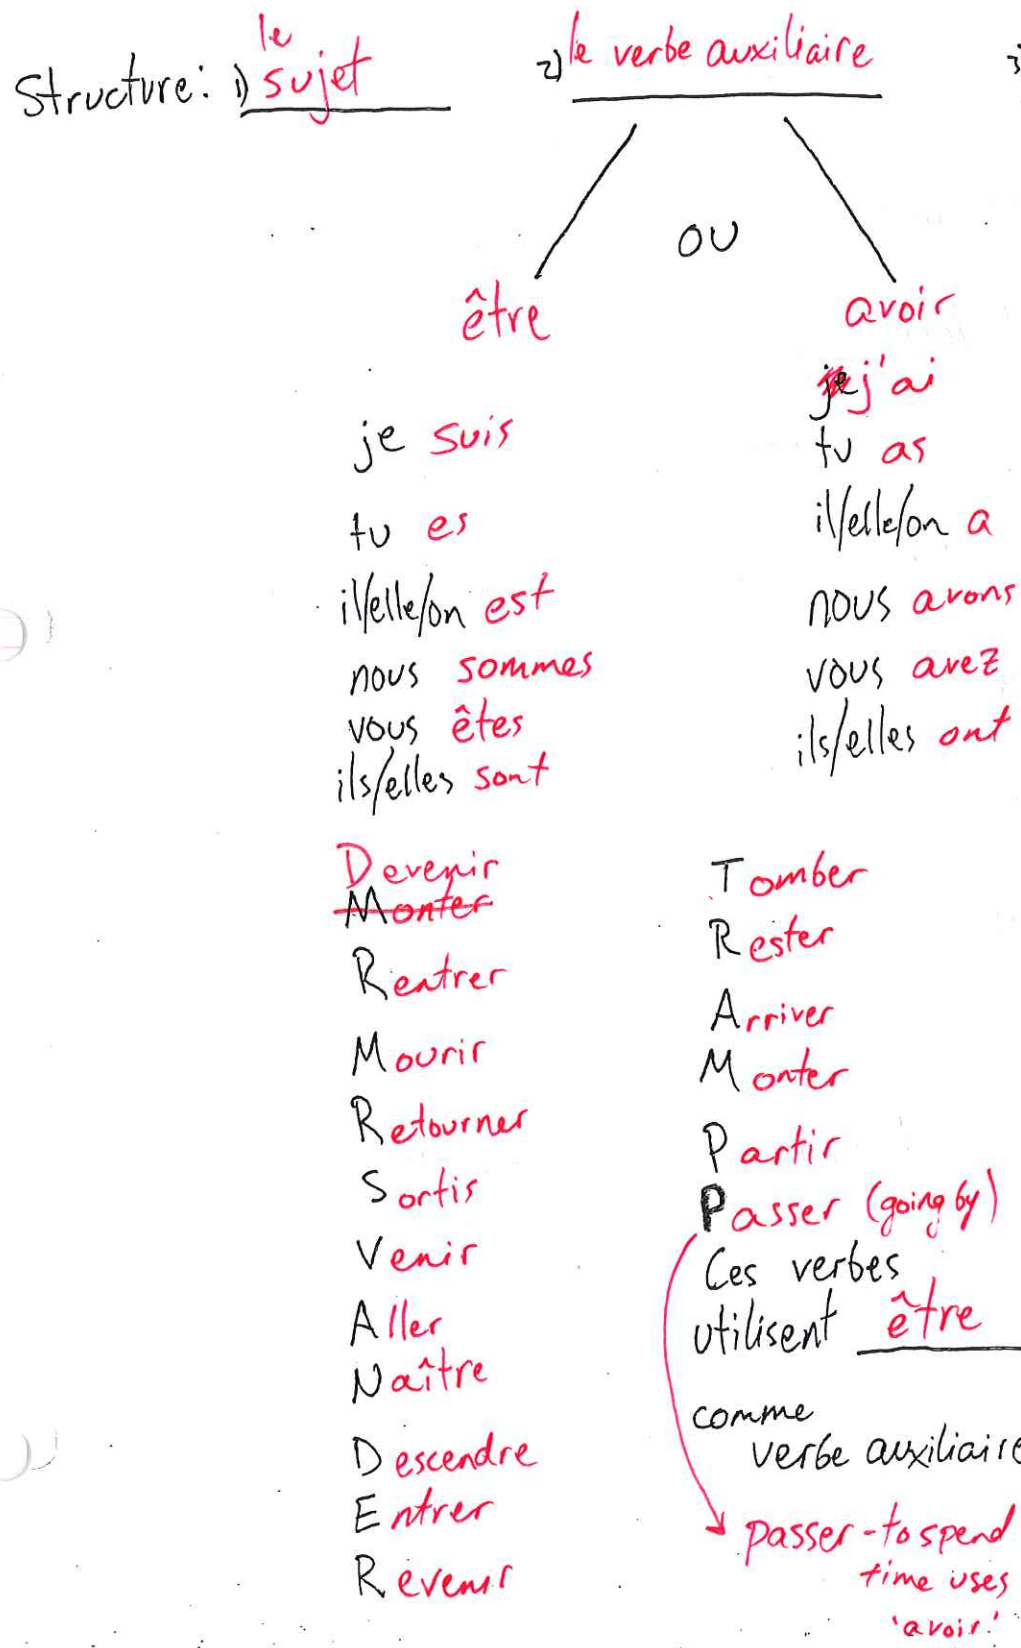 le
Structure: 1) sujet 2) le verbe auxiliaire 3)
OU
être
je suis
tu es
il/elle/on est
nous sommes
vous êtes
ils/elles sont
avoir
j'ai
tu as
il/elle/on a
nous avons
vous avez
ils/elles ont
Devenir
Monter
Rentrer
Mourir
Retourner
Sortis
Venir
Aller
Naître
Descendre
Entrer
Revenir
Tomber
Rester
Arriver
Monter
Partir
Passer (going by)
Ces verbes
utilisent être
comme
verbe auxiliaire
passer - to spend
time uses
'avoir.'